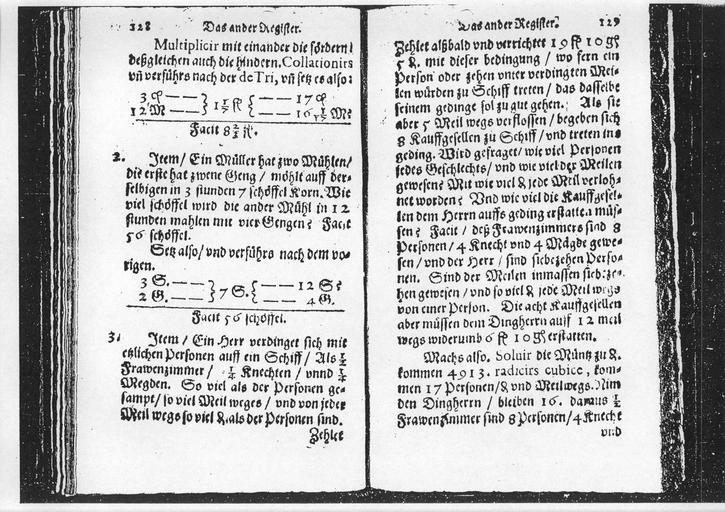 128 Das ander Register.
Multiplicir mit einander die fördern /
deßgleichen auch die hindern. Collationirs
vn̄ verführs nach der de Tri, vn̄ setz es also:
3 — — } 1 1/2 fl { — — 17
12 M — — } { — — 16 1/2 M?
Facit 8 2/2 fl.
2. Item / Ein Müller hat zwo Mühlen /
die erste hat zwene Geng / möhlt auff der-
selbigen in 3 stunden 7 schöffel Korn. Wie
viel schöffel wird die ander Mühl in 12
stunden mahlen mit vier Gengen? Facit
56 schöffel.
Setz also / vnd verführs nach dem vo-
rigen.
3 S. — — } 7 S. { — — 12 S?
2 G. — — } { — — 4 G.
Facit 56 schöffel.
3. Item / Ein Herr verdinget sich mit
etzlichen Personen auff ein Schiff / Als 1/2
Frawenzimmer / 1/4 Knechten / vnnd 1/4
Megden. So viel als der Personen ge-
sampt / so viel Meil weges / vnd von jeder
Meil wegs so viel ₰ als der Personen sind.
Zehlet
Das ander Register. 129
Zehlet alßbald vnd verrichtet 19 fl 10 gl
5 ₰. mit dieser bedingung / wo fern ein
Person oder zehen vnter verdingten Mei-
len würden zu Schiff treten / das dasselbe
seinem gedinge sol zu gut gehen. Als sie
aber 5 Meil wegs verflossen / begeben sich
8 Kauffgesellen zu Schiff / vnd treten ins
geding. Wird gefraget / wie viel Personen
jedes Geschlechts / vnd wie viel der Meilen
gewesen? Mit wie viel ₰ jede Meil verloh-
net worden? Vnd wie viel die Kauffgesel-
len dem Herrn auffs geding erstatten müs-
sen? Facit / deß Frawenzimmers sind 8
Personen / 4 Knecht vnd 4 Mägde gewe-
sen / vnd der Herr / sind siebezehen Perso-
nen. Sind der Meilen inmassen siebeze-
hen gewesen / vnd so viel ₰ jede Meil wegs
von einer Person. Die acht Kauffgesellen
aber müssen dem Dingherrn auff 12 meil
wegs widerumb 6 fl 10 gl erstatten.
Machs also. Soluir die Müntz zu ₰.
kommen 4913. radicirs cubice, kom-
men 17 Personen / ₰ vnd Meilwegs. Nim
den Dingherrn / bleiben 16. daraus 1/2
Frawenzimmer sind 8 Personen / 4 Knecht
vnd